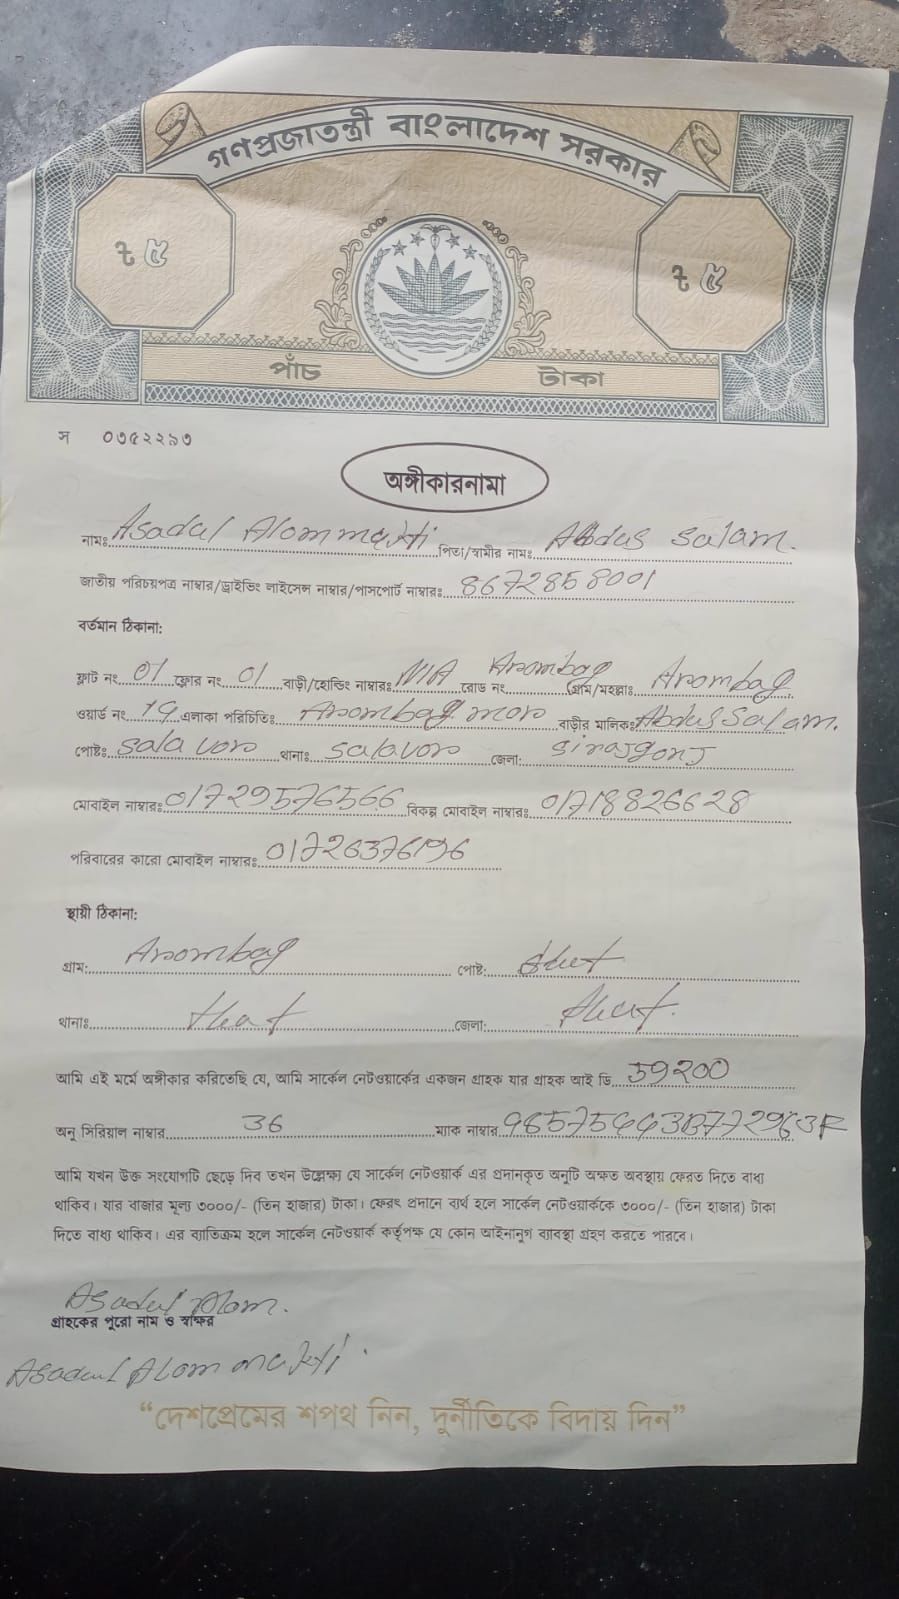 গণপ্রজাতন্ত্রী বাংলাদেশ সরকার
৳ ৫ ৳ ৫
পাঁচ টাকা
স ০৩৫২২৯৩
অঙ্গীকারনামা
নামঃ Asadul Alom mukti পিতা/স্বামীর নামঃ Abdus salam.
জাতীয় পরিচয়পত্র নাম্বার/ড্রাইভিং লাইসেন্স নাম্বার/পাসপোর্ট নাম্বারঃ 8672858001
বর্তমান ঠিকানা:
ফ্লাট নং 01 ফ্লোর নং 01 বাড়ী/হোল্ডিং নাম্বারঃ N/A রোড নং Arambag গ্রাম/মহল্লাঃ Arombag
ওয়ার্ড নং 14 এলাকা পরিচিতিঃ Arombag mor বাড়ীর মালিকঃ Abdus Salam.
পোষ্টঃ salavor থানাঃ salavor জেলা: sirajgonj
মোবাইল নাম্বারঃ 01729576566 বিকল্প মোবাইল নাম্বারঃ 01718826628
পরিবারের কারো মোবাইল নাম্বারঃ 01726376196
স্থায়ী ঠিকানা:
গ্রাম: Arombag পোষ্ট:
থানাঃ জেলা:
আমি এই মর্মে অঙ্গীকার করিতেছি যে, আমি সার্কেল নেটওয়ার্কের একজন গ্রাহক যার গ্রাহক আই ডি 39200
অনু সিরিয়াল নাম্বার 36 ম্যাক নাম্বার
আমি যখন উক্ত সংযোগটি ছেড়ে দিব তখন উল্লেক্ষ্য যে সার্কেল নেটওয়ার্ক এর প্রদানকৃত অনুটি অক্ষত অবস্থায় ফেরত দিতে বাধ্য
থাকিব। যার বাজার মূল্য ৩০০০/- (তিন হাজার) টাকা। ফেরৎ প্রদানে ব্যর্থ হলে সার্কেল নেটওয়ার্ককে ৩০০০/- (তিন হাজার) টাকা
দিতে বাধ্য থাকিব। এর ব্যাতিক্রম হলে সার্কেল নেটওয়ার্ক কর্তৃপক্ষ যে কোন আইনানুগ ব্যাবস্থা গ্রহণ করতে পারবে।
Asadul Alom.
গ্রাহকের পুরো নাম ও স্বাক্ষর
Asadul Alom mukti.
“দেশপ্রেমের শপথ নিন, দুর্নীতিকে বিদায় দিন”